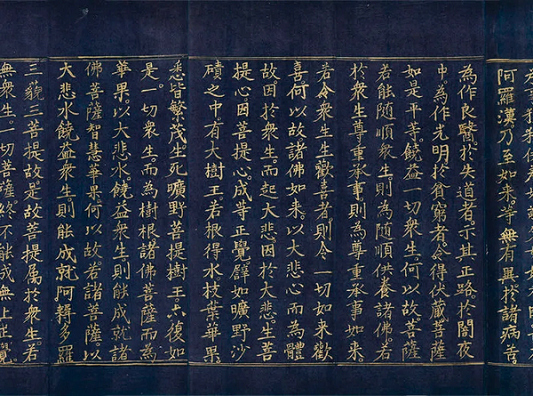 阿羅漢乃至如來。等無有異。於諸病苦。
為作良醫。於失道者。示其正路。於闇夜
中。為作光明。於貧窮者。令得伏藏。菩薩
如是平等。饒益一切衆生。何以故。菩薩
若能隨順衆生。則為隨順供養諸佛。若
於衆生尊重承事。則為尊重承事如來。
若令衆生生歡喜者。則令一切如來歡
喜。何以故。諸佛如來。以大悲心而為體
故。因於衆生。而起大悲。因於大悲生菩
提心。因菩提心。成等正覺。譬如曠野沙
磧之中。有大樹王。若根得水。枝葉華果。
悉皆繁茂。生死曠野。菩提樹王。亦復如
是。一切衆生。而為樹根。諸佛菩薩。而為
華果。以大悲水。饒益衆生。則能成就諸
佛菩薩智慧華果。何以故。若諸菩薩。以
大悲水。饒益衆生。則能成就。阿耨多羅
三藐三菩提故。是故菩提。屬於衆生。若
無衆生。一切菩薩。終不能成無上正覺。